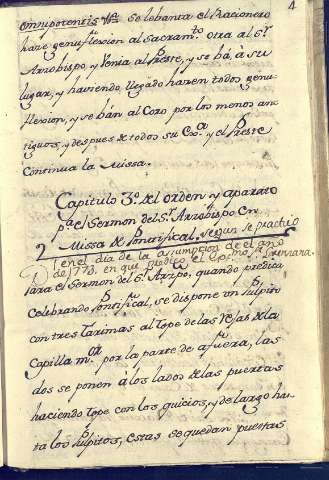 4
omnipotentis &c. se lebanta el Racionero
haze genuflexion al Sacramto. otra al Sr.
Arzobispo y venia al Preste, y se bá, á su
lugar, y haviendo llegado hazen todos genu
flexion, y se bán al Coro por los menos an
tiguos, y despues de todos su Exa. y el Preste
Continua la Missa.
Capitulo 3º. del orden y aparato
pa. el Sermon del Sr. Arzobispo en
2 Missa de Pontifical, segun se practicó
en el dia de la Assumpcion de el año
de 1773, en que predicó el
Para el Sermon del Sr. Arzpo. quando predica
Celebrando Pontifical, se dispone un Pulpito
con tres tarimas al tope de las rejas de la
Capilla mor. por la parte de afuera, las
dos se ponen á los lados de las puertas
haciendo tope con los quicios, y de largo has
ta los Pulpitos, estas se quedan puestas